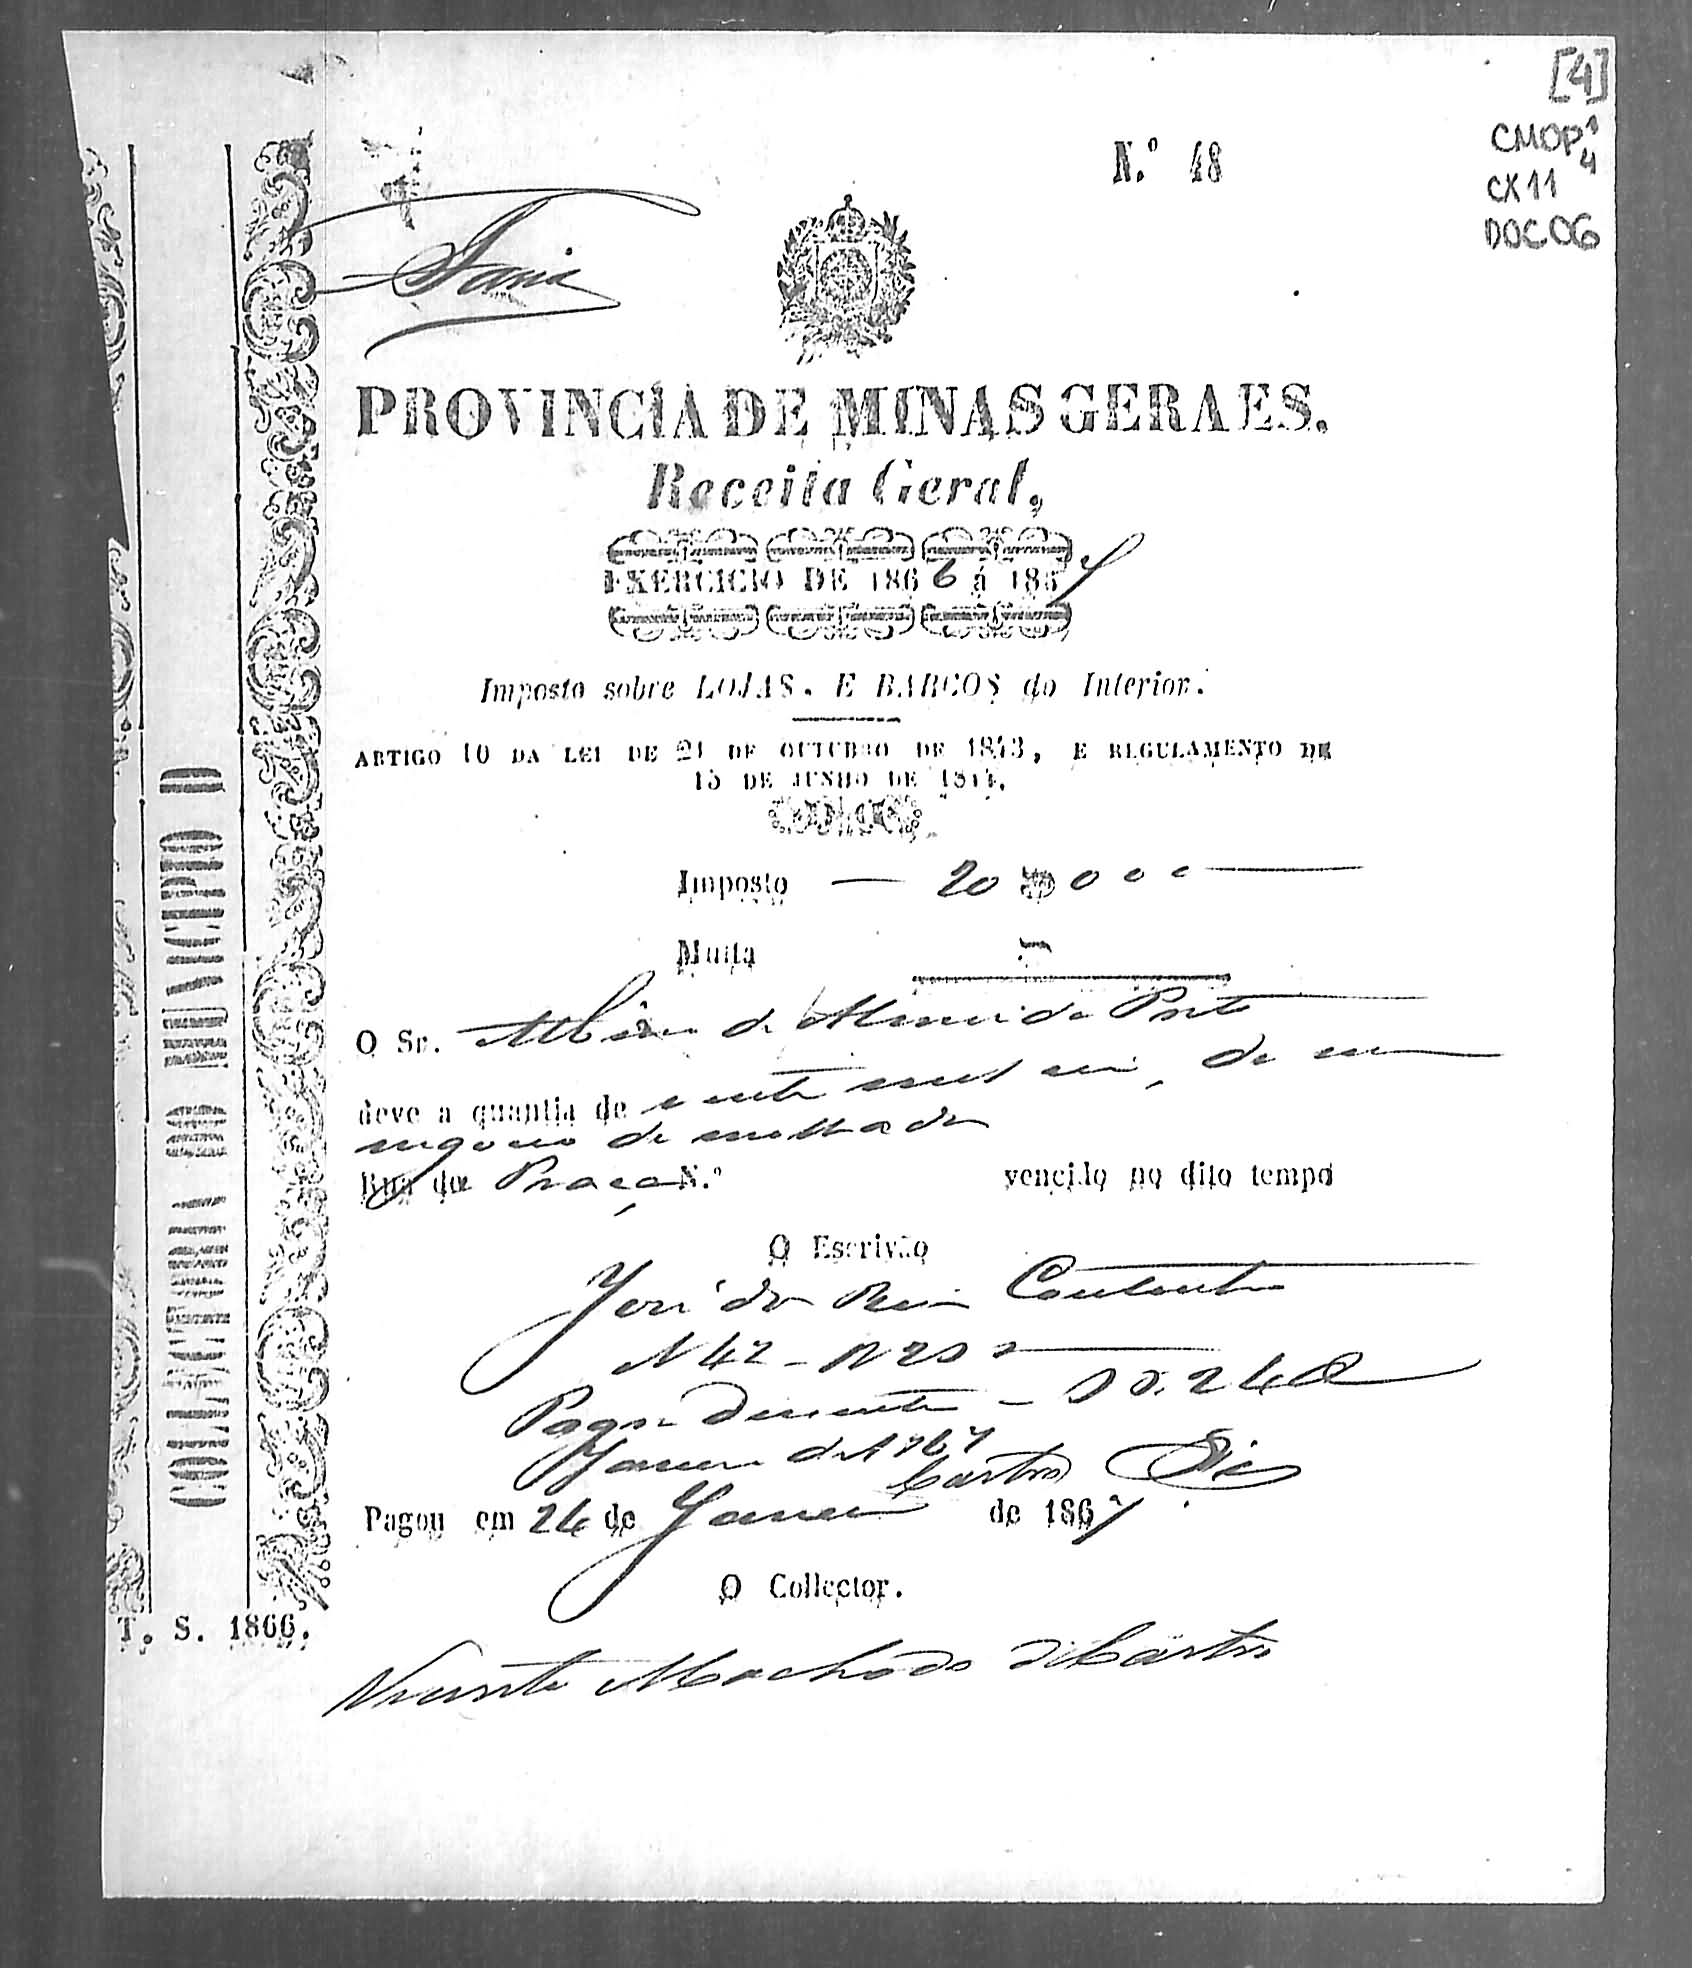 [4]
CMOP 1
4
CX11
DOC 06
N.º 48
Faria
PROVINCIA DE MINAS GERAES.
Receita Geral,
EXERCICIO DE 1866 á 1867
Imposto sobre LOJAS. E BARCOS do Interior.
ARTIGO 10 DA LEI DE 21 DE OUTUBRO DE 1843, E REGULAMENTO DE
15 DE JUNHO DE 1844.
Imposto — 20$000
Multa
O Sr. Albino de Almeida Porto
deve a quantia de vinte mil reis, de um
negocio de molhados
Rua da Praça N.º vencido no dito tempo
O Escrivão
José dos Reis Coutinho
N 42
Pagou
Janeiro de 1867
Castro Reis
Pagou em 26 de Janeiro de 1867
O Collector.
Vicente Machado de Castro
COLLECTORIA DO MUNICIPIO D
T. S. 1866.